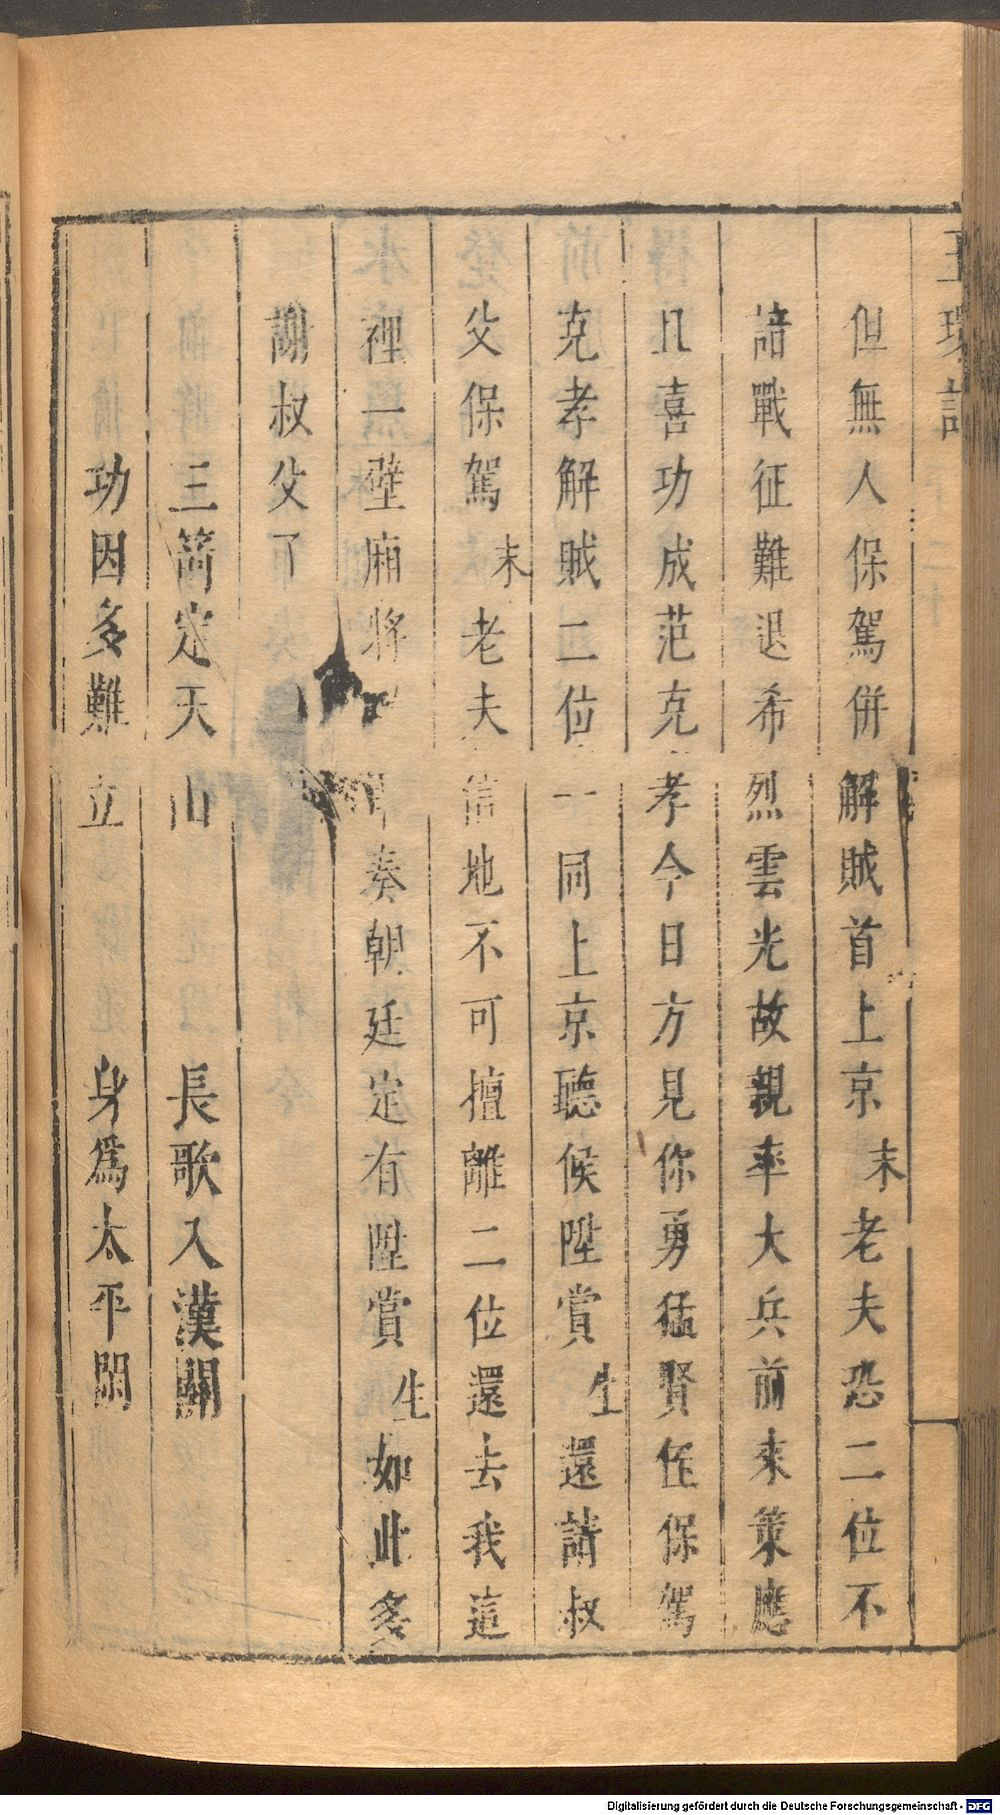 玉環記
但無人保駕併解賊首上京末老夫恐二位不
諳戰征難退希烈雲光故親率大兵前來策應
且喜功成范克孝今日方見你勇猛賢侄保駕
克孝解賊二位一同上京聽候陞賞生還請叔
父保駕末老夫信地不可擅離二位還去我這
裡一壁廂將 奏朝廷定有陞賞生如此多
謝叔父了
三箭定天山 長歌入漢關
功因多難立 身為太平閑
Digitalisierung gefördert durch die Deutsche Forschungsgemeinschaft - DFG